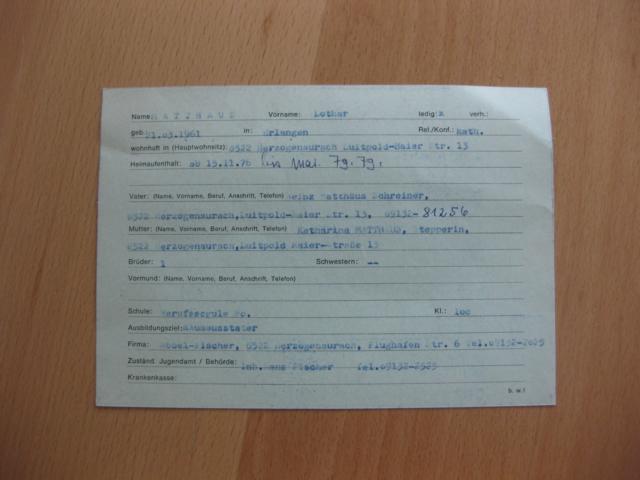 Name: MATTHÄUS Vorname: Lothar ledig: x verh.:
geb. 21.03.1961 in: Erlangen Rel./Konf.: kath.
wohnhaft in (Hauptwohnsitz): 8522 Herzogenaurach Luitpold-Maier Str. 13
Heimaufenthalt: ab 15.11.76 bis 79.
Vater: (Name, Vorname, Beruf, Anschrift, Telefon) Heinz Matthäus Schreiner,
8522 Herzogenaurach, Luitpold-Maier Str. 13, 09132-81256
Mutter: (Name, Vorname, Beruf, Anschrift, Telefon) Katharina MATTHÄUS, Stepperin,
8522 Herzogenaurach, Luitpold Maier-Straße 13
Brüder: 1 Schwestern: --
Vormund: (Name, Vorname, Beruf, Anschrift, Telefon)
Schule: Berufsschule Kl.: 10c
Ausbildungsziel: Raumausstatter
Firma: Möbel-Fischer, 8522 Herzogenaurach, Flughafen Str. 6 Tel.09132-2629
Zuständ. Jugendamt / Behörde: Inh. Hans Fischer Tel.09132-2629
Krankenkasse:
b. w.!